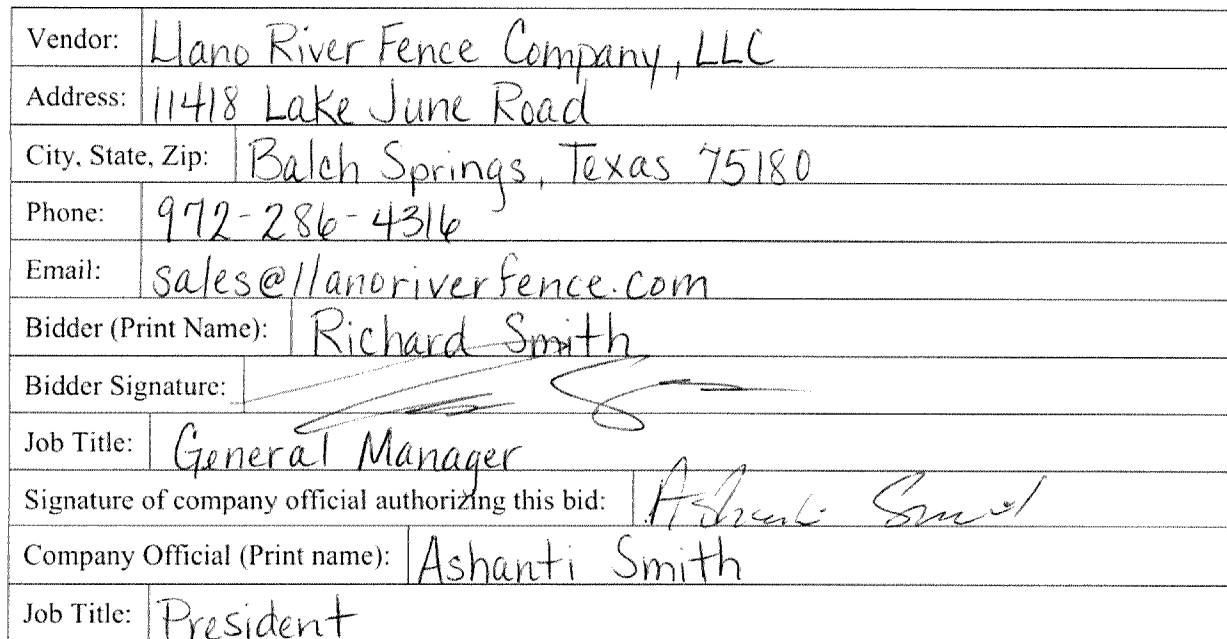 Vendor: Llano River Fence Company, LLC
Address: 11418 Lake June Road
City, State, Zip: Balch Springs, Texas 75180
Phone: 972-286-4316
Email: sales@llanoriverfence.com
Bidder (Print Name): Richard Smith
Bidder Signature:
Job Title: General Manager
Signature of company official authorizing this bid: Ashanti Smith
Company Official (Print name): Ashanti Smith
Job Title: President